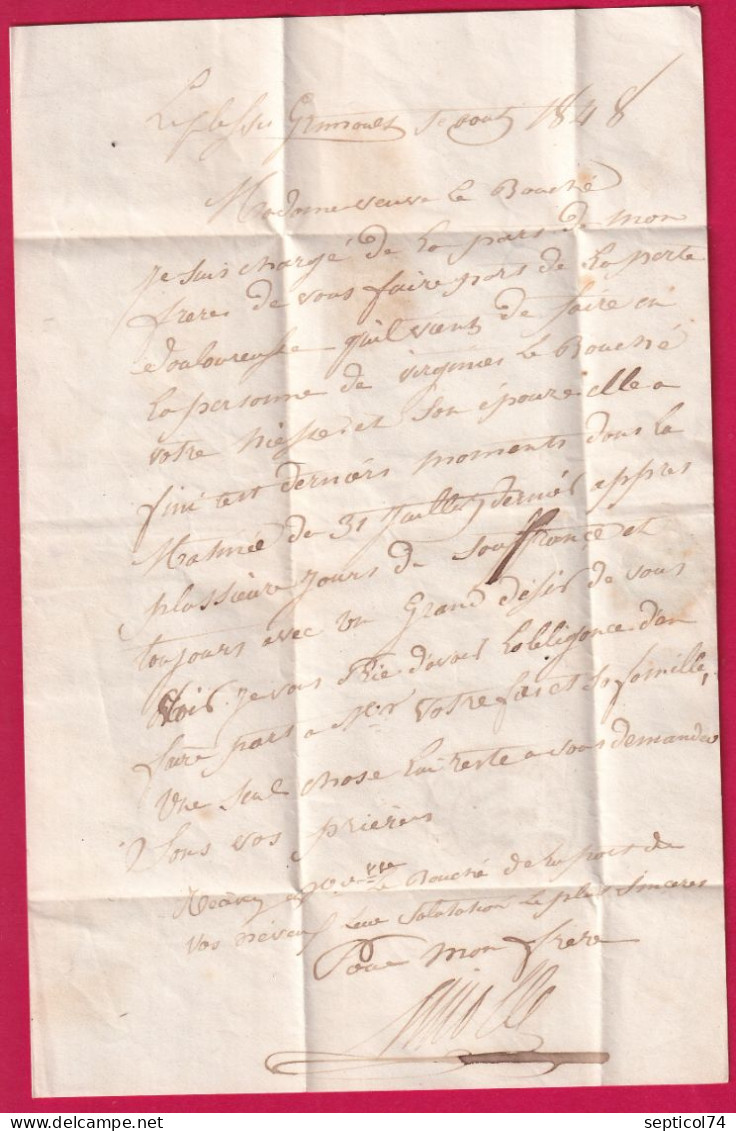 Le plessis Grimoult 1e aout 1848
Madame veuve Le Bouché
Je suis chargé de la part de mon
freres de vous faire part de la perte
douloureusse qu'il vient de faire en
la personne de virginies Le Bouché
votre niesse et son épouze elle a
fini ses derniers moments dans la
Matinée de 31 Juillet dernier appres
plussieure jours de souffrance et
toujours avec un Grand désir de vous
voir. Je vous Prie d'avoir L'obligence d'en
faire part a Mr votre fils et sa famille,
Une seul chose lui reste a vous demander
Sons vos prieres
Recevez Vve Le Bouché de la part de
vos neveux Leur Salutation Le plus Sinceres
Pour Mon frere
septicol74